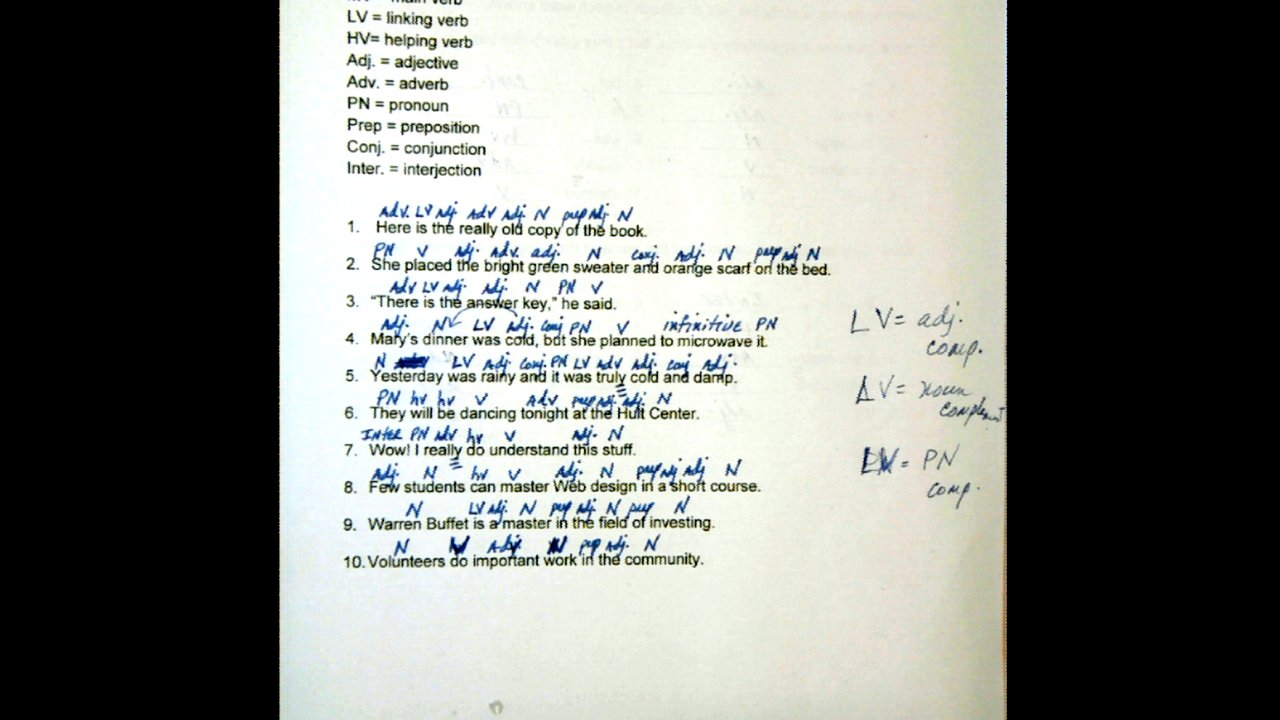 verb
LV = linking verb
HV= helping verb
Adj. = adjective
Adv. = adverb
PN = pronoun
Prep = preposition
Conj. = conjunction
Inter. = interjection
Adv. LV Adj. Adv Adj. N prep Adj. N
1. Here is the really old copy of the book.
PN V Adj. Adv. adj. N conj. Adj. N prep adj N
2. She placed the bright green sweater and orange scarf on the bed.
Adv LV Adj. Adj. N PN V
3. "There is the answer key," he said.
Adj. N LV Adj. conj PN V infinitive PN
4. Mary's dinner was cold, but she planned to microwave it.
N LV Adj. conj. PN LV Adv Adj. conj Adj.
5. Yesterday was rainy and it was truly cold and damp.
PN hv hv V Adv prep Adj. adj. N
6. They will be dancing tonight at the Hult Center.
Inter PN adv hv V Adj. N
7. Wow! I really do understand this stuff.
Adj. N hv V Adj. N prep adj adj N
8. Few students can master Web design in a short course.
N LV adj. N prep adj. N prep N
9. Warren Buffet is a master in the field of investing.
N Adj. N prep Adj. N
10. Volunteers do important work in the community.
LV= adj.
comp.
LV= noun
complement
LV= PN
comp.